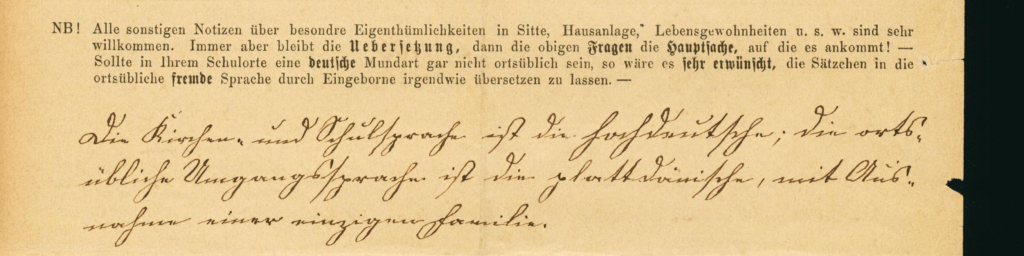 NB! Alle sonstigen Notizen über besondre Eigenthümlichkeiten in Sitte, Hausanlage, Lebensgewohnheiten u. s. w. sind sehr
willkommen. Immer aber bleibt die Uebersetzung, dann die obigen Fragen die Hauptsache, auf die es ankommt! —
Sollte in Ihrem Schulorte eine deutsche Mundart gar nicht ortsüblich sein, so wäre es sehr erwünscht, die Sätzchen in die
ortsübliche fremde Sprache durch Eingeborne irgendwie übersetzen zu lassen. —
Die Kirchen- und Schulsprache ist die hochdeutsche; die orts-
übliche Umgangssprache ist die plattdänische, mit Aus-
nahme einer einzigen Familie.